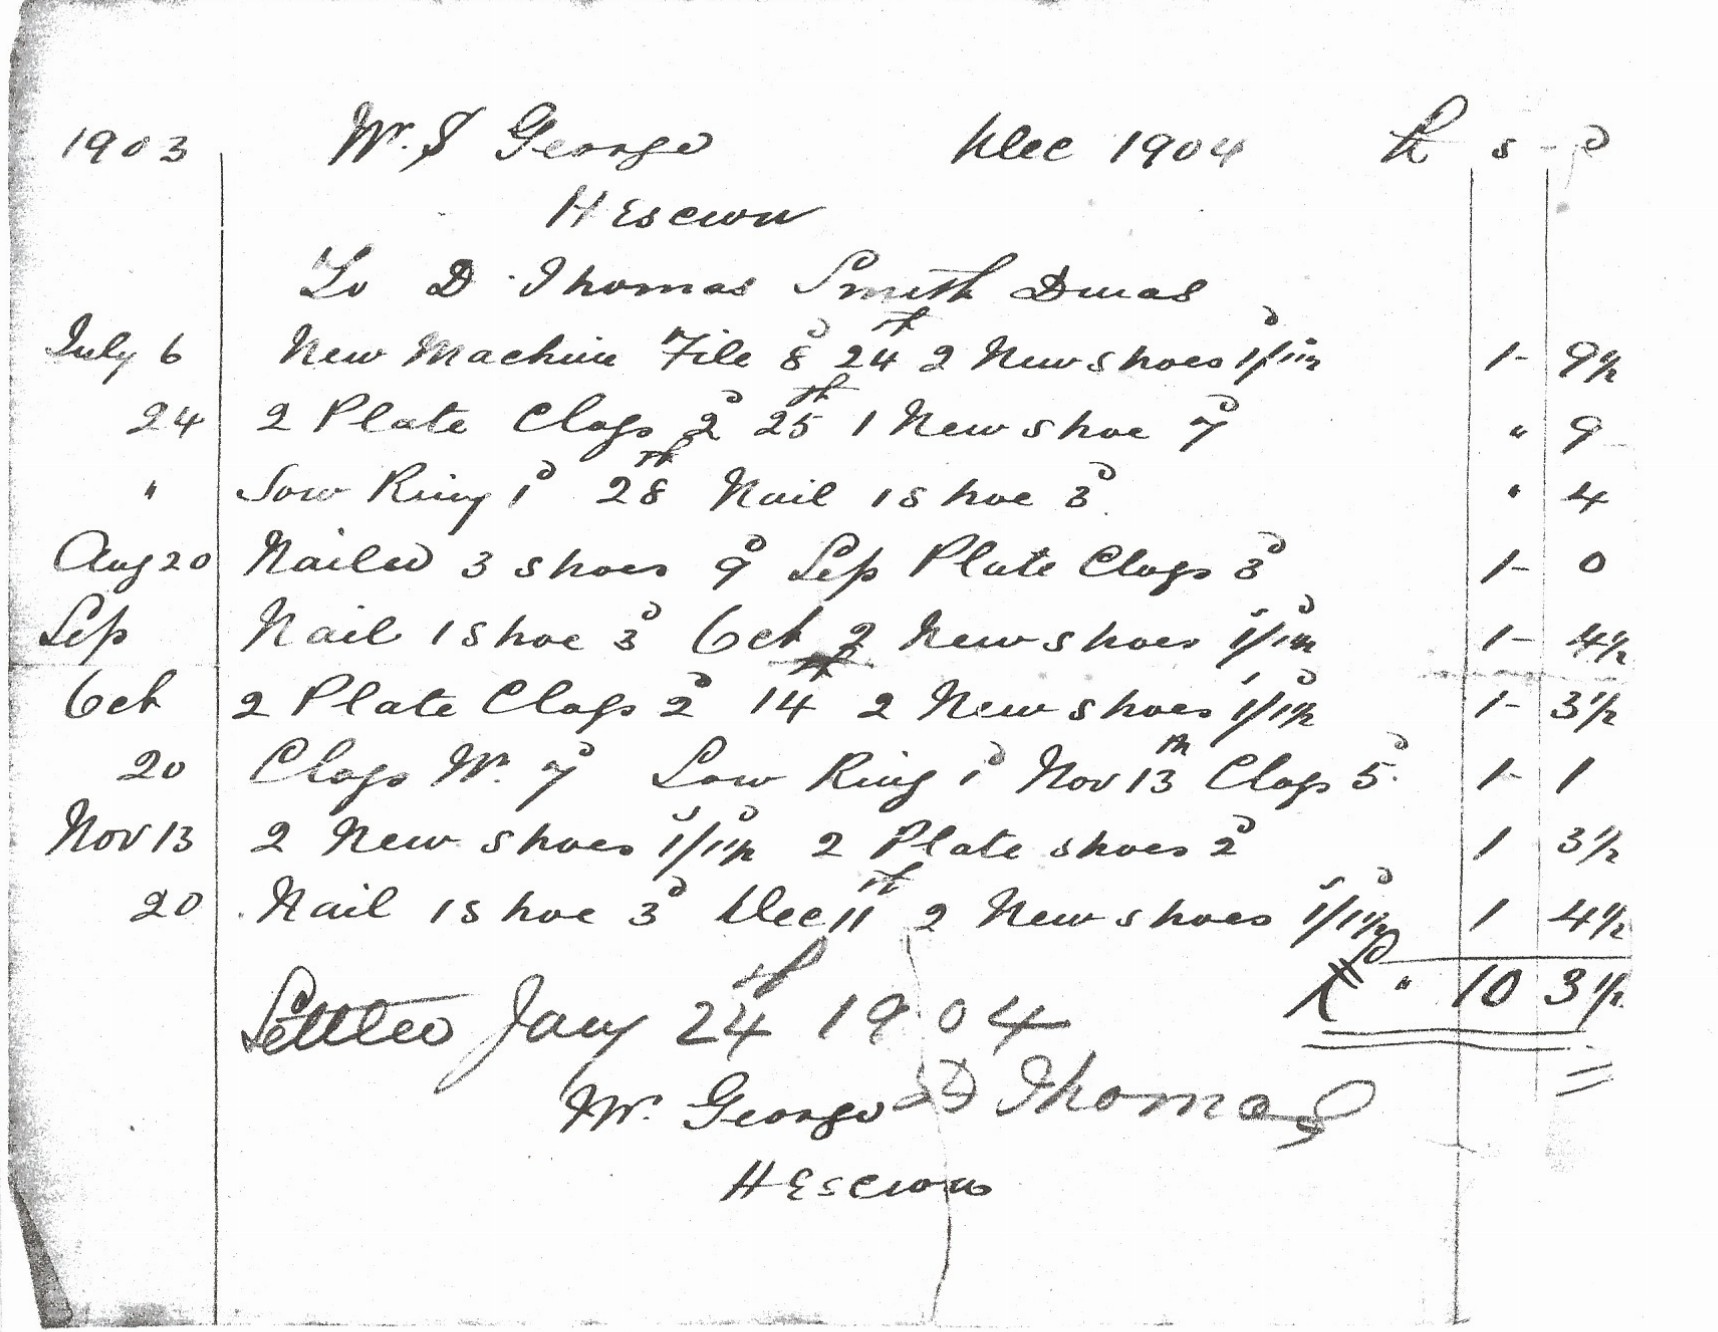 1903 Mr. S George Dec 1904 £ s - d
Hescwn
To D Thomas Smith Dinas
July 6 New Machine File 8d 24th 2 New shoes 1s/1½d 1- 9½
24 2 Plate Clogs 2d 25th 1 New shoe 7d " 9
" Sow Ring 1d 28th Nail 1 shoe 3d " 4
Aug 20 Nailed 3 shoes 9d Sep Plate Clogs 3d 1- 0
Sep Nail 1 shoe 3d Oct 2 New shoes 1s/1½d 1- 4½
Oct 2 Plate Clogs 2d 14th 2 New shoes 1s/1½d 1- 3½
20 Clogs W. 7d Sow Ring 1d Nov 13th Clogs 5d 1- 1
Nov 13 2 New shoes 1s/1½d 2 Plate shoes 2d 1 3½
20 Nail 1 shoe 3d Dec 11th 2 New shoes 1s/1½d 1 4½
£ " 10 3½
Settled Jany 24th 1904
Mr. George D Thomas
Hescwn